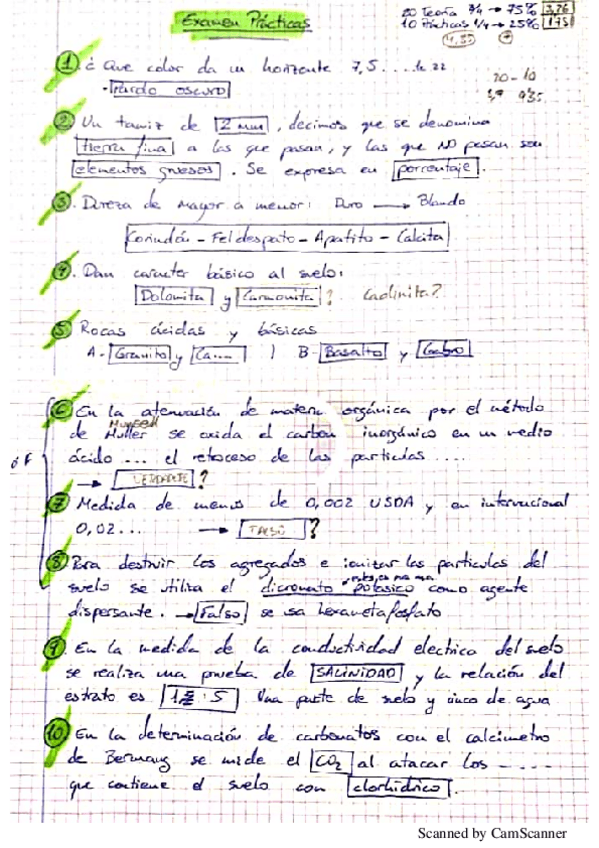 Examen Prácticas
20 Teoría 3/4 → 75% 3,76
10 Prácticas 1/4 → 25% 1,75
20 - 10
1. ¿ Que color da un horizonte 7,5 ....
- Pardo oscuro
2 Un tamiz de 2 mm, decimos que se denomina
tierra fina a las que pasan, y las que NO pasan son
elementos gruesos. Se expresa en porcentaje.
3. Dureza de mayor a menor: Duro → Blando
Corindón - Feldespato - Apatito - Calcita
4. Dan caracter básico al suelo:
Dolomita y ? Caolinita?
5 Rocas ácidas y básicas
A - Granito y Ca.... ) B - Basalto y Gabro
6 En la atenuación de materia orgánica por el método
de Muller Munsell se oxida el carbon inorgánico en un medio
ácido ... el retroceso de las particulas ....
→ ?
7 Medida de menos de 0,002 USDA y en internacional
0,02... → FALSO ?
8 Para destruir los agregados e ionizar las particulas del
suelo se utiliza el dicromato potasico como agente
dispersante. → Falso se usa hexametafosfato
9 En la medida de la conductividad electrica del suelo
se realiza una prueba de SALINIDAD y la relación del
estrato es 1 5 Una parte de suelo y cinco de agua
10 En la determinación de carbonatos con el calcimetro
de se mide el CO2 al atacar los - ...
que contiene el suelo con clorhídrico.
Scanned by CamScanner